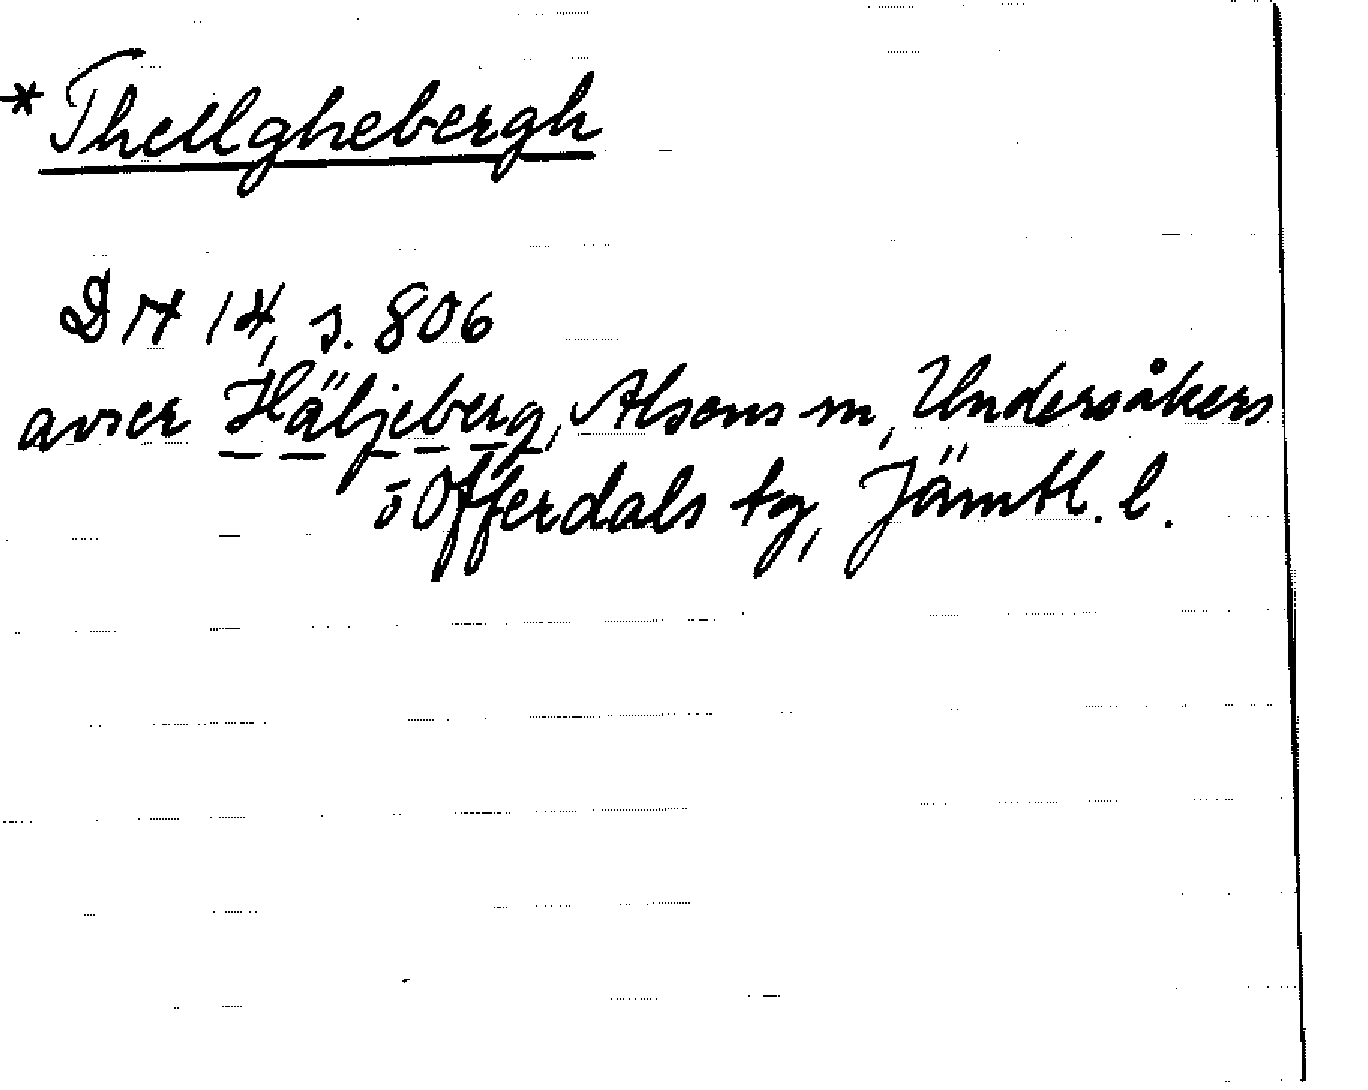 * Thellghebergh
DN 14, s. 806
avser Häljeberg, Alsens sn, Undersåkers
o Offerdals tg, Jämtl. l.